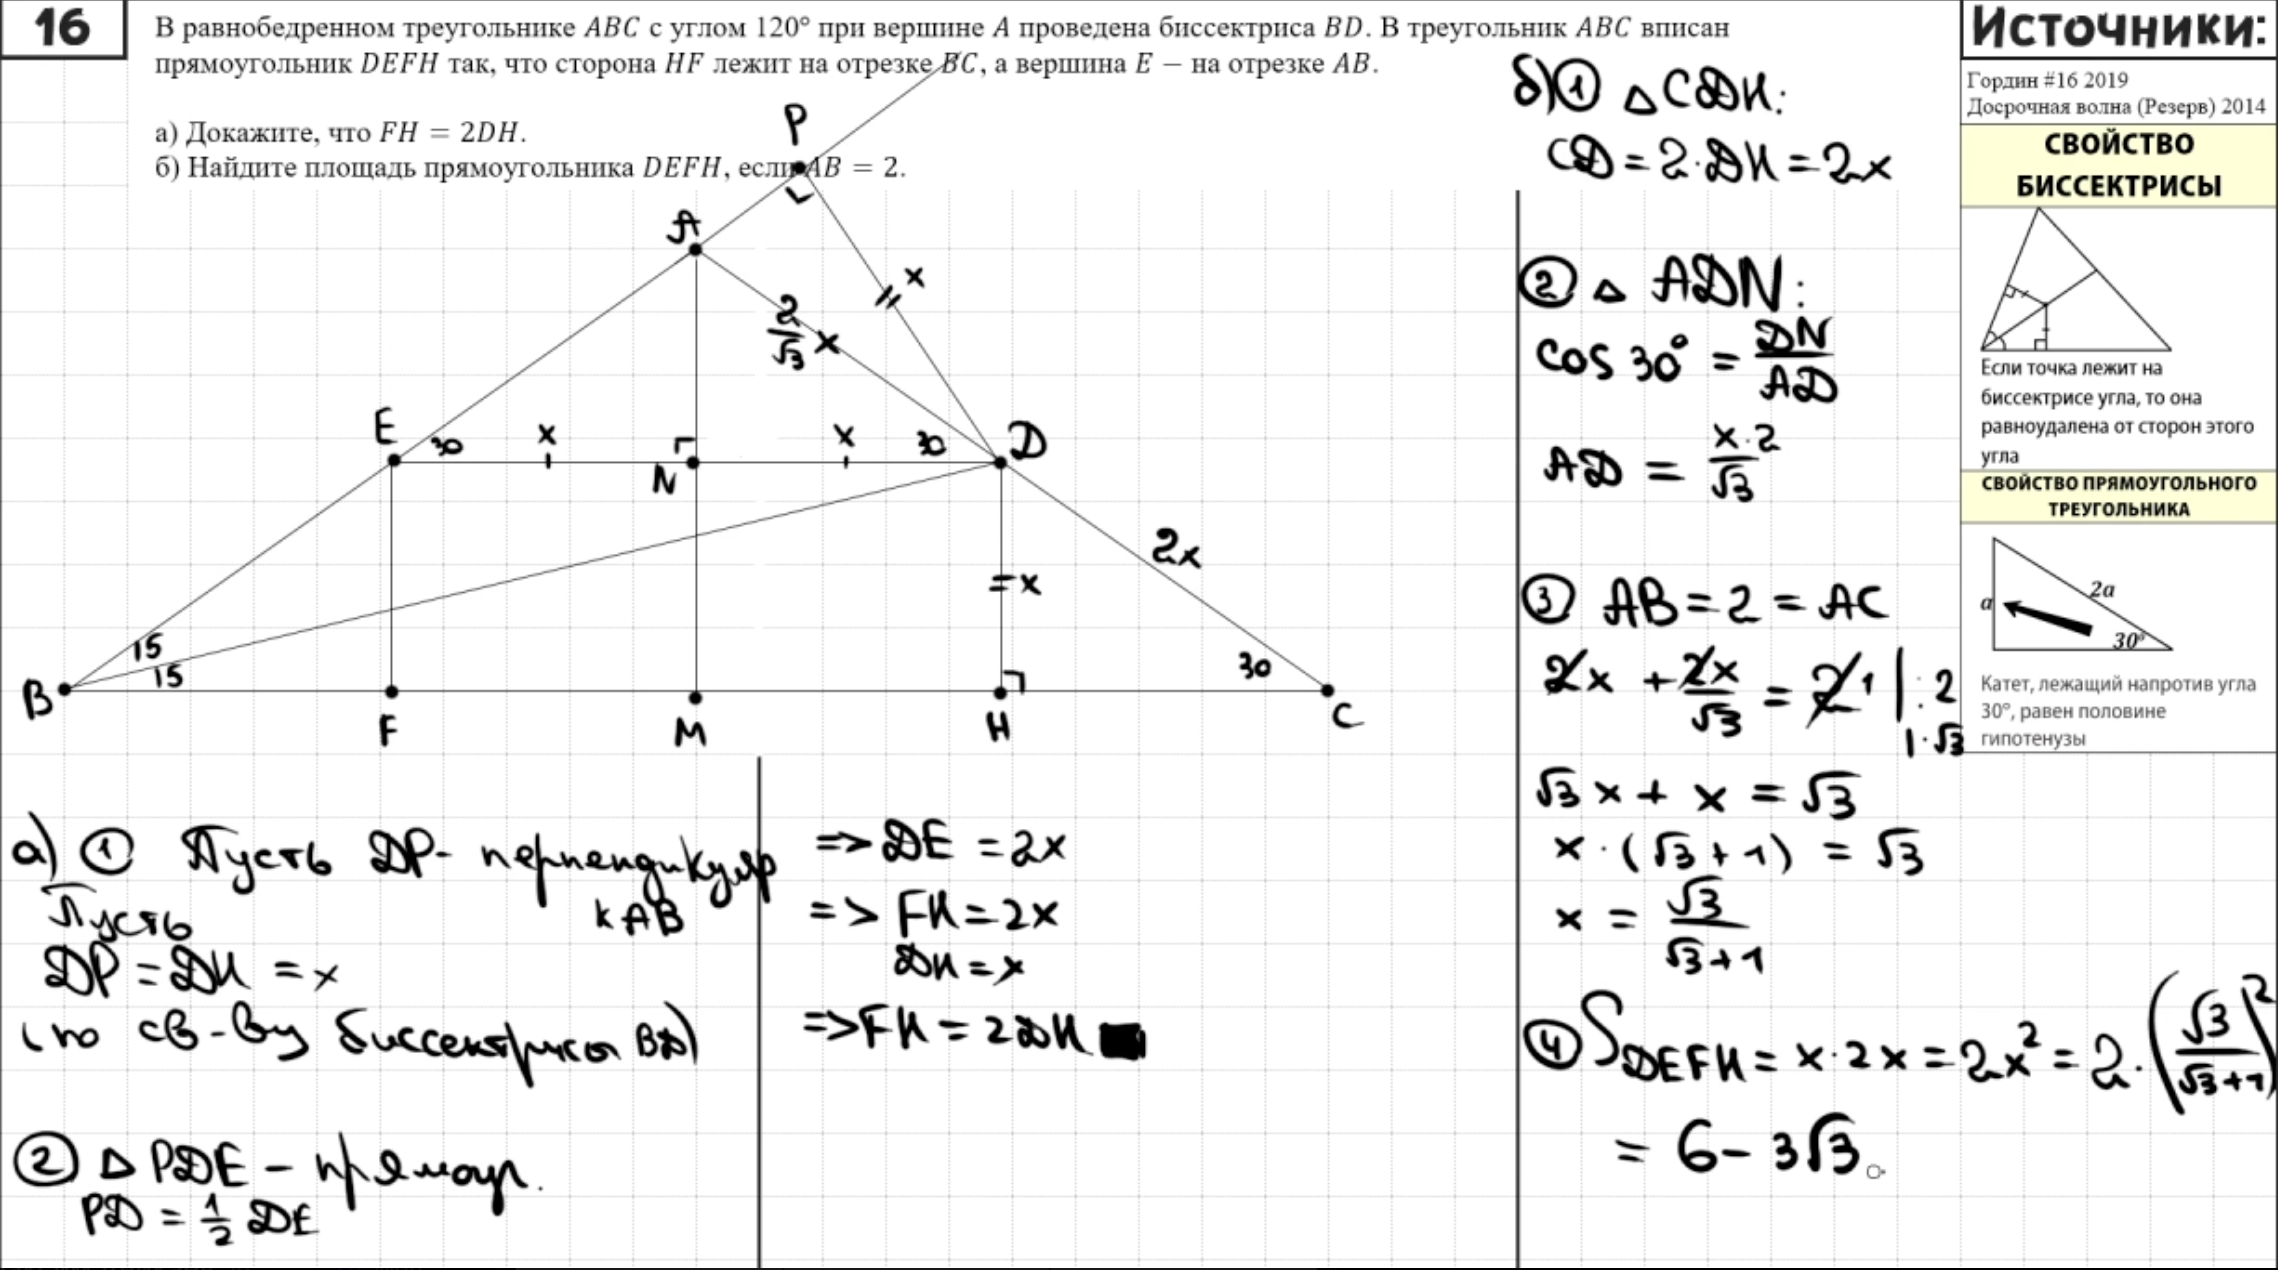 16
В равнобедренном треугольнике ABC с углом 120° при вершине A проведена биссектриса BD. В треугольник ABC вписан
прямоугольник DEFH так, что сторона HF лежит на отрезке BC, а вершина E – на отрезке AB.
а) Докажите, что FH = 2DH.
б) Найдите площадь прямоугольника DEFH, если AB = 2.
P
A
x
2/√3 x
E
30
x
x
30
D
N
2x
= x
15
15
30
B
F
M
H
C
а) ① Пусть DP - перпендикуляр
к AB
Пусть
DP = DH = x
(по св-ву биссектрисы BD)
② △ PDE - прямоуг.
PD = 1/2 DE
=> DE = 2x
=> FH = 2x
DH = x
=> FH = 2DH
б) ① △ CDH:
CD = 2·DH = 2x
② △ ADN:
cos 30° = DN/AD
AD = x·2/√3
③ AB = 2 = AC
2x + 2x/√3 = 2 1 | : 2
| · √3
√3 x + x = √3
x · (√3 + 1) = √3
x = √3/(√3+1)
④ S DEFH = x·2x = 2x² = 2·(√3/(√3+1))²
= 6 - 3√3
Источники:
Гордин #16 2019
Досрочная волна (Резерв) 2014
СВОЙСТВО
БИССЕКТРИСЫ
Если точка лежит на
биссектрисе угла, то она
равноудалена от сторон этого
угла
СВОЙСТВО ПРЯМОУГОЛЬНОГО
ТРЕУГОЛЬНИКА
a
2a
30°
Катет, лежащий напротив угла
30°, равен половине
гипотенузы